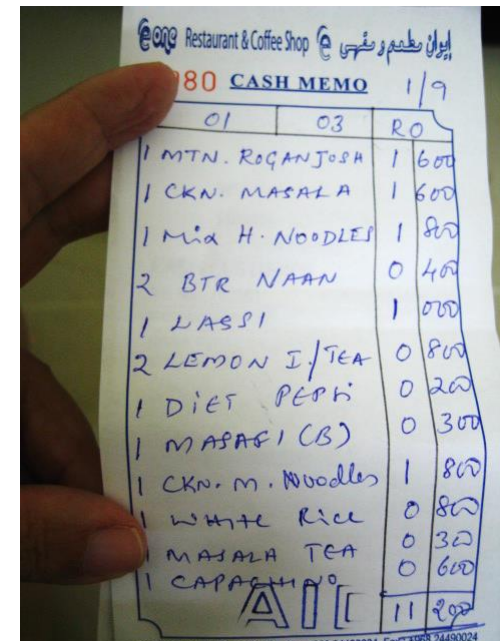 eone Restaurant & Coffee Shop إيوان مطعم ومقهى
980 CASH MEMO 1/9
01 03 RO
1 MTN. ROGANJOSH 1 600
1 CKN. MASALA 1 600
1 Mix H. NOODLES 1 800
2 BTR NAAN 0 400
1 LASSI 1 000
2 LEMON I/TEA 0 800
1 DIET PEPSi 0 200
1 MASAFI (B) 0 300
1 CKN. M. Noodles 1 800
1 WHITE Rice 0 800
1 MASALA TEA 0 300
1 CAPACHINO 0 600
11 200
24490024